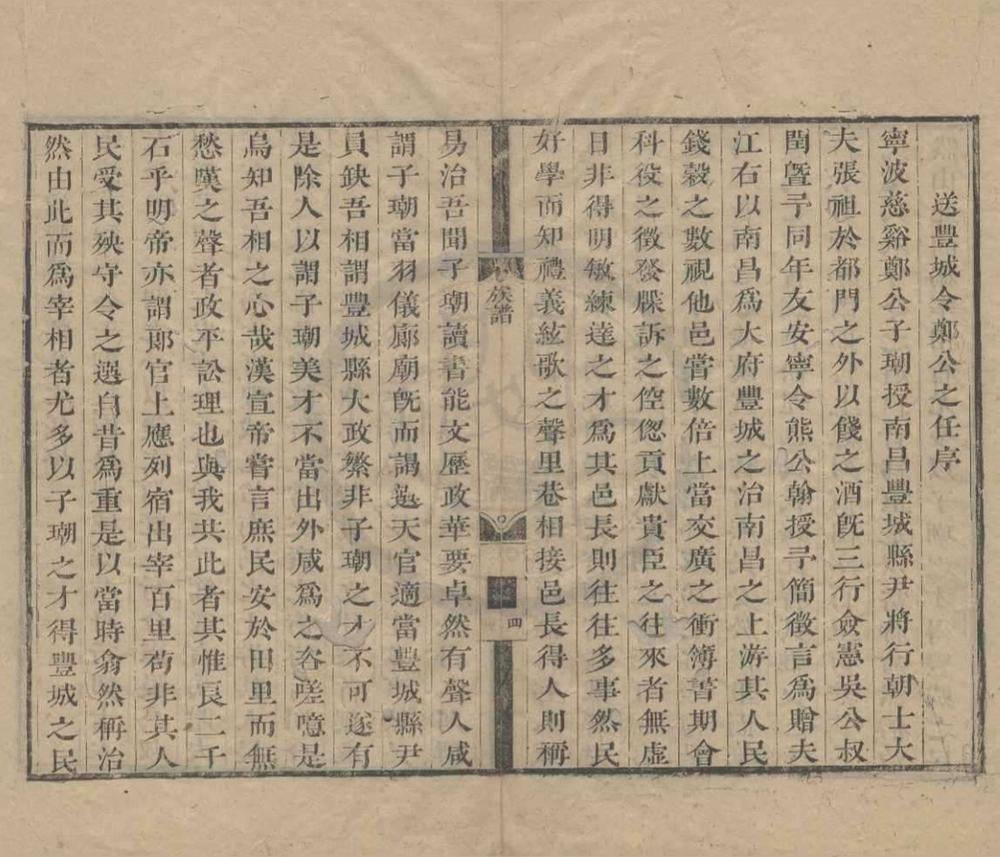 送豐城令鄭公之任序
寧波慈谿鄭公子瑚授南昌豐城縣尹將行朝士大
夫張祖於都門之外以餞之酒旣三行僉憲吳公叔
閏曁予同年友安寧令熊公翰授予簡徵言爲贈夫
江右以南昌爲大府豐城之治南昌之上游其人民
錢穀之數視他邑嘗數倍上當交廣之衝簿書期會
科役之徵發牒訴之倥偬貢獻貴臣之往來者無虛
日非得明敏練達之才爲其邑長則往往多事然民
好學而知禮義絃歌之聲里巷相接邑長得人則稱
族譜
四
易治吾聞子瑚讀書能文歷政華要卓然有聲人咸
謂子瑚當羽儀廊廟旣而謁選天官適當豐城縣尹
員缺吾相謂豐城縣大政繁非子瑚之才不可遂有
是除人以謂子瑚美才不當出外咸爲之咨嗟噫是
烏知吾相之心哉漢宣帝嘗言庶民安於田里而無
愁嘆之聲者政平訟理也與我共此者其惟良二千
石乎明帝亦謂郎官上應列宿出宰百里苟非其人
民受其殃守令之選自昔爲重是以當時翕然稱治
然由此而爲宰相者尤多以子瑚之才得豐城之民